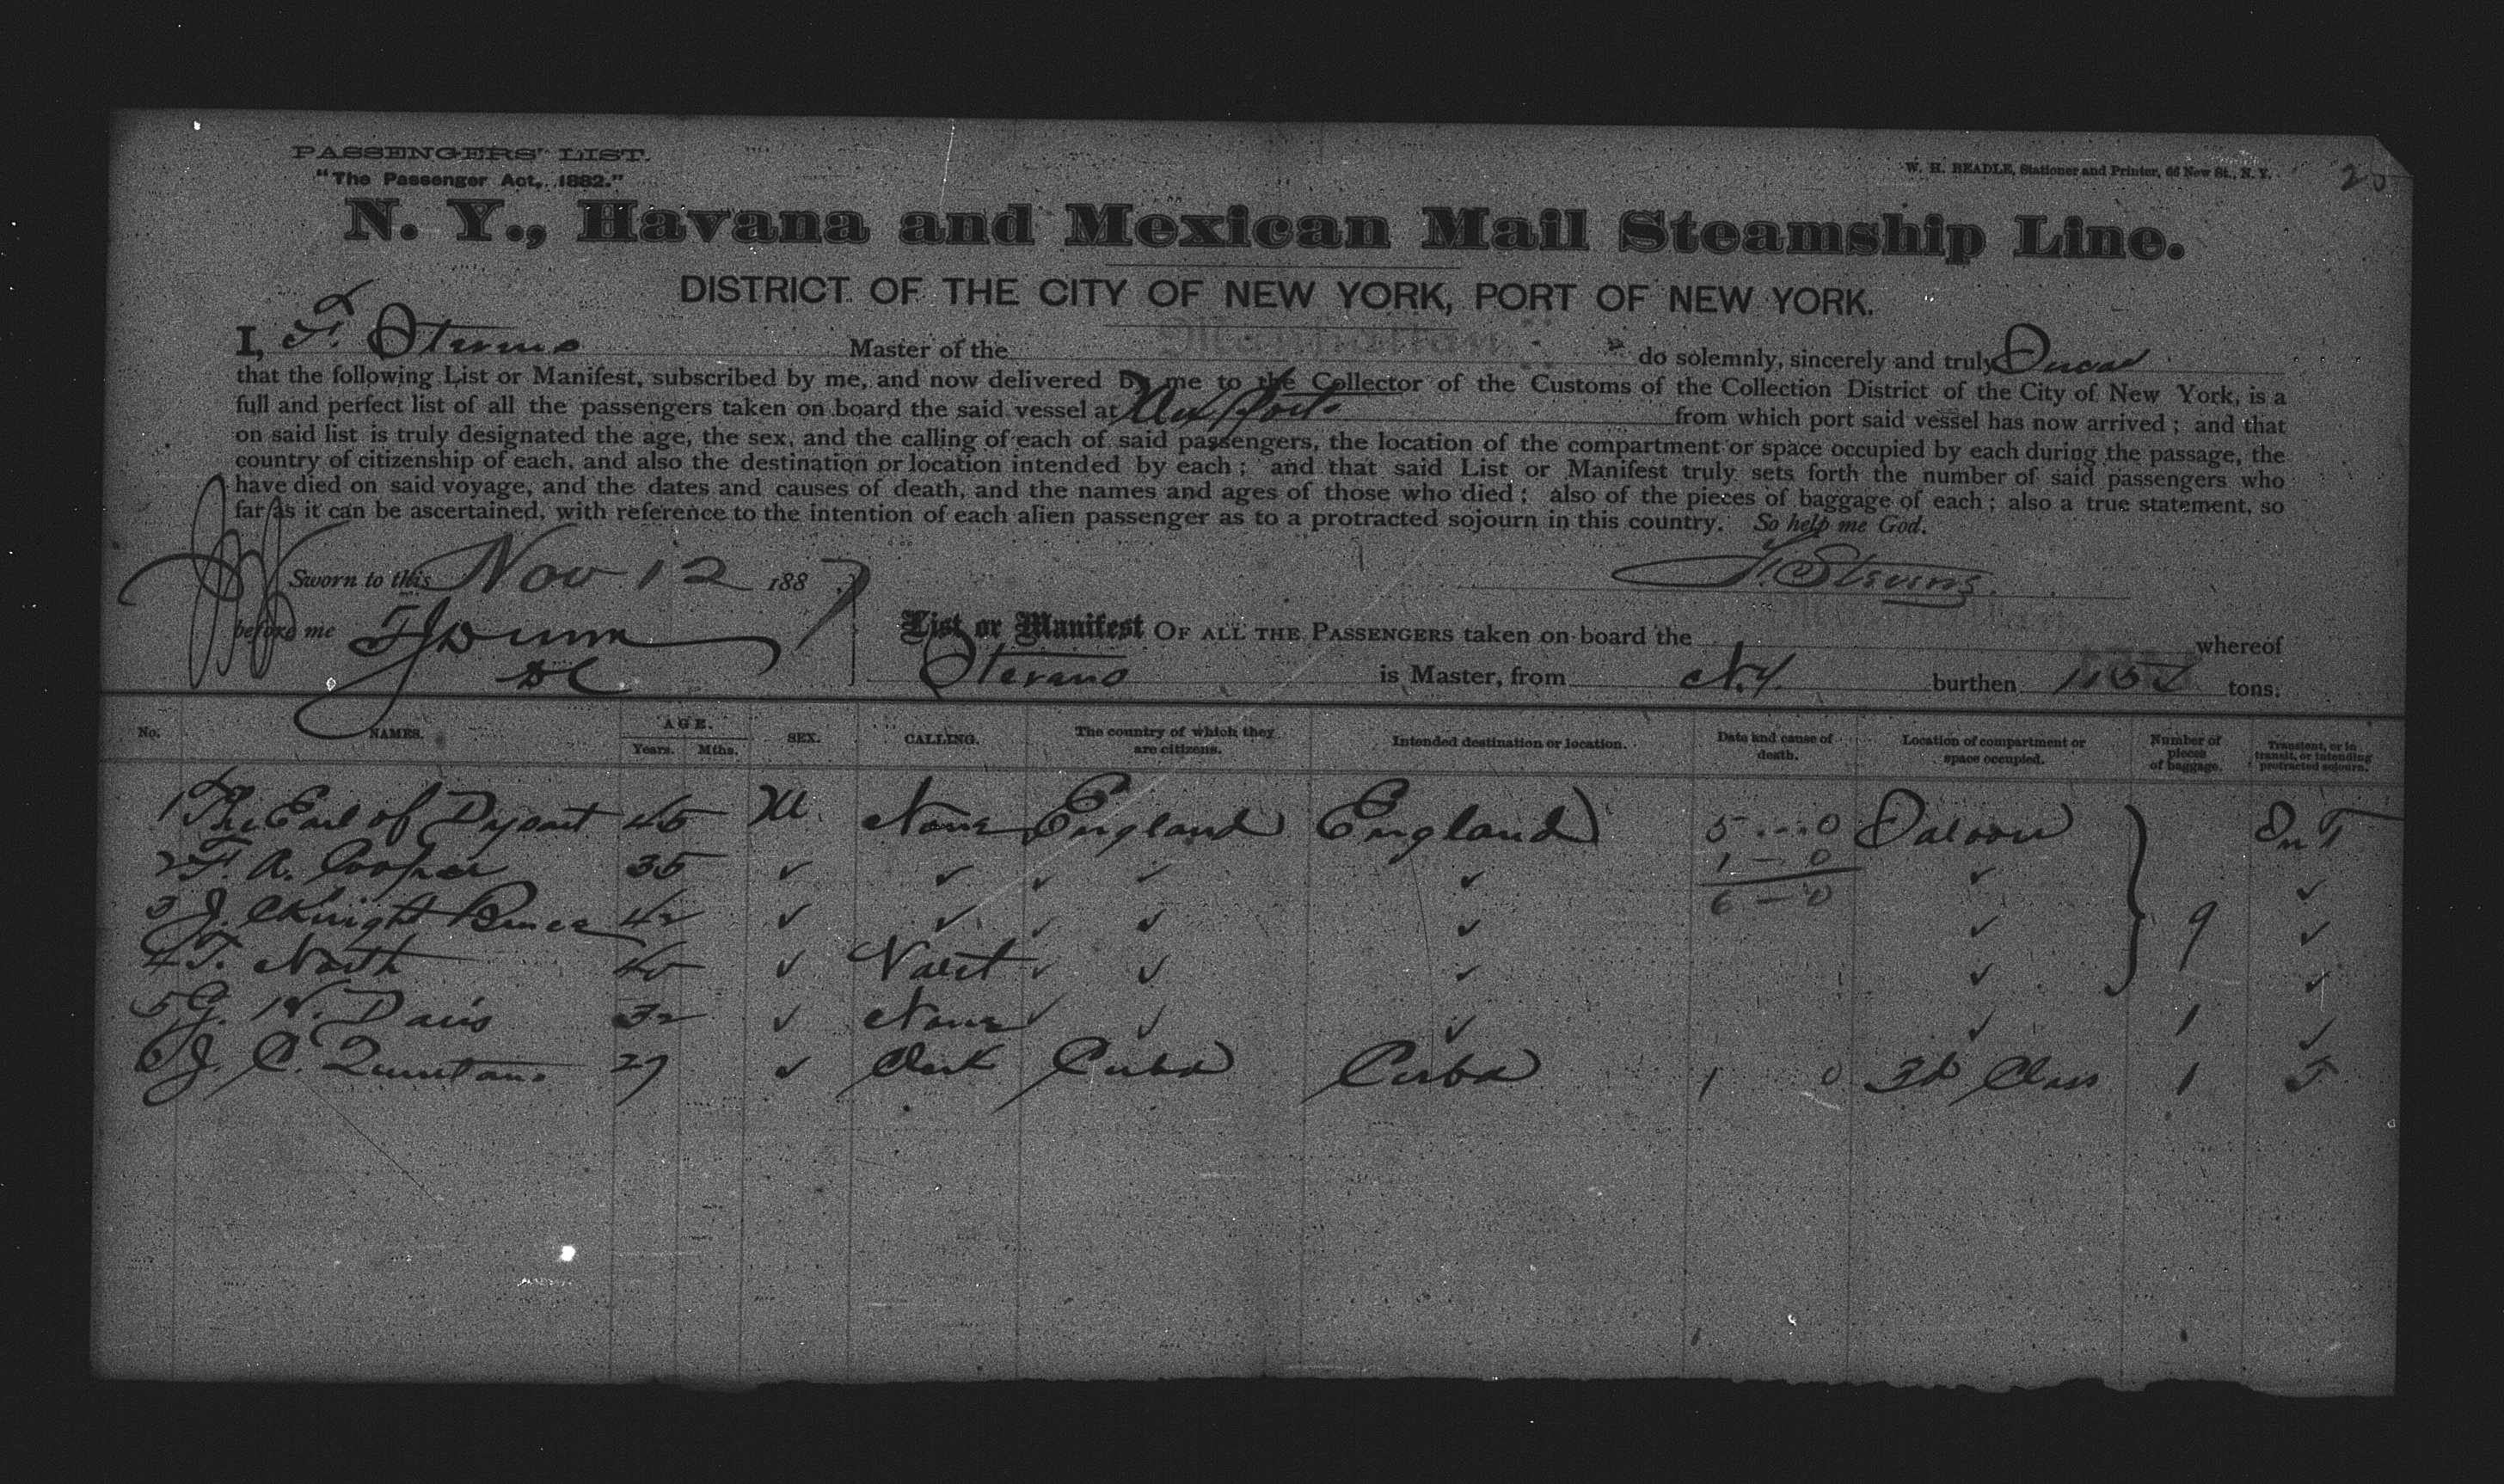 PASSENGERS' LIST.
"The Passenger Act, 1882."
W. H. BEADLE, Stationer and Printer, 66 New St., N. Y.
N. Y., Havana and Mexican Mail Steamship Line.
DISTRICT OF THE CITY OF NEW YORK, PORT OF NEW YORK.
I, F. Stevens Master of the Manhattan do solemnly, sincerely and truly Swear
that the following List or Manifest, subscribed by me, and now delivered by me to the Collector of the Customs of the Collection District of the City of New York, is a
full and perfect list of all the passengers taken on board the said vessel at from which port said vessel has now arrived; and that
on said list is truly designated the age, the sex, and the calling of each of said passengers, the location of the compartment or space occupied by each during the passage, the
country of citizenship of each, and also the destination or location intended by each; and that said List or Manifest truly sets forth the number of said passengers who
have died on said voyage, and the dates and causes of death, and the names and ages of those who died; also of the pieces of baggage of each; also a true statement, so
far as it can be ascertained, with reference to the intention of each alien passenger as to a protracted sojourn in this country. So help me God.
Sworn to this Nov 12 1887 F. Stevens
before me
List or Manifest OF ALL THE PASSENGERS taken on board the Manhattan whereof
Stevens is Master, from N.Y. burthen tons.
No. NAMES. AGE. Years. Mths. SEX. CALLING. The country of which they are citizens. Intended destination or location. Date and cause of death. Location of compartment or space occupied. Number of pieces of baggage. Transient, or in transit, or intending protracted sojourn.
1 The Earl of Dysart 45 M. None England England 5 - 0 Saloon In T
2 F. A. Cooper 35 ✓ ✓ ✓ ✓ ✓ 1 - 0 ✓ ✓
6 - 0
3 J. Knight Bruce 42 ✓ ✓ ✓ ✓ ✓ ✓ 9 ✓
4 T. North 40 ✓ Valet ✓ ✓ ✓ ✓ ✓
5 G. W. Davis 32 ✓ None ✓ ✓ ✓ ✓ 1 ✓
6 J. C. Quintana 27 ✓ Clerk Cuba Cuba 1 0 3d Class 1 T